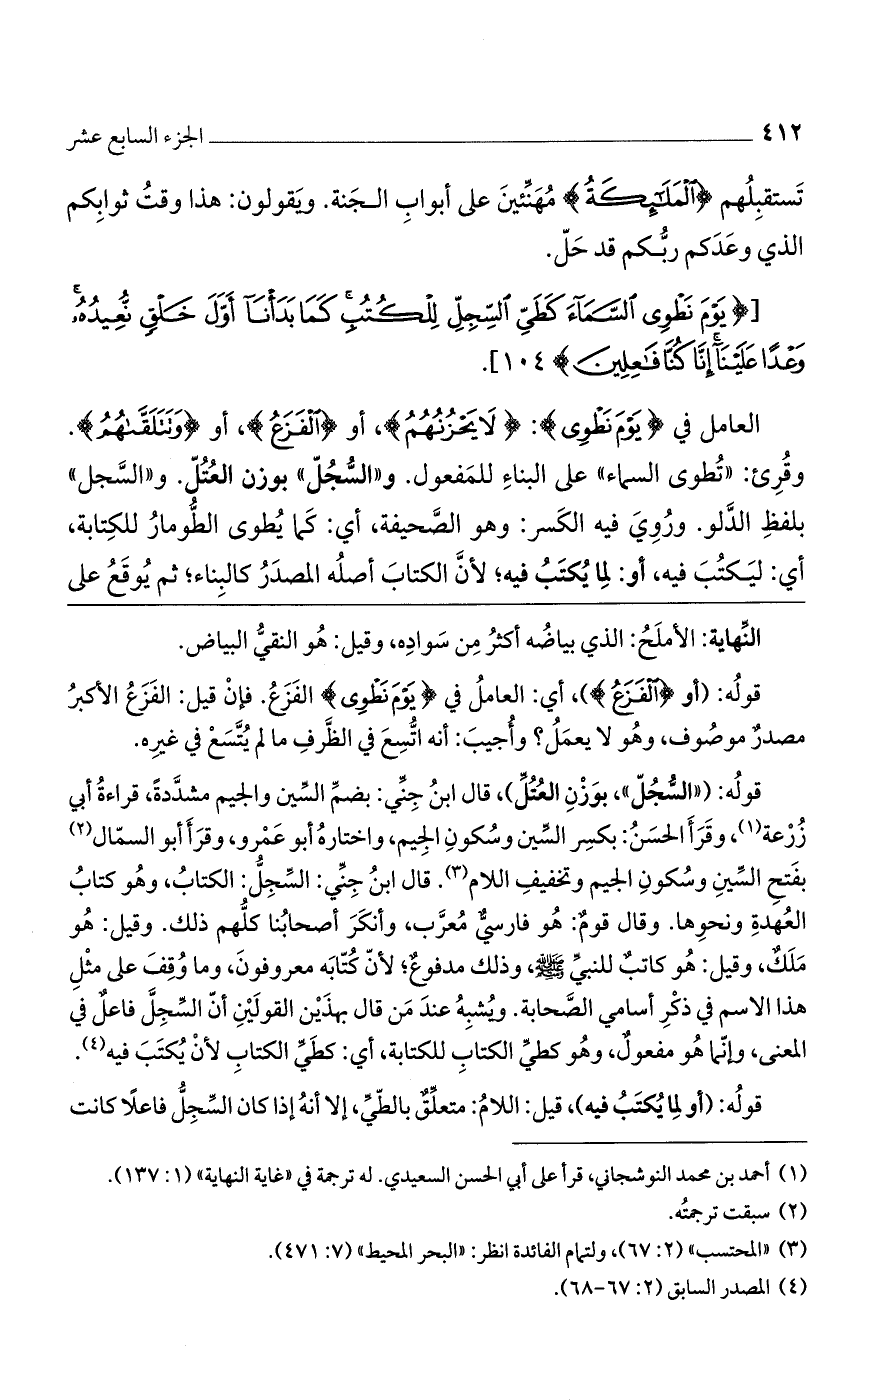 ٤١٢ ــــــــــــــــــــــــــــــــ الجزء السابع عشر
تَستقبِلُهم ﴿ٱلْمَلَٰٓئِكَةُ﴾ مُهَنِّئينَ على أبوابِ الـجَنة. ويَقولون: هذا وقتُ ثوابِكم
الذي وعَدَكم ربُّكم قد حَلّ.
[﴿يَوْمَ نَطْوِى ٱلسَّمَآءَ كَطَىِّ ٱلسِّجِلِّ لِلْكُتُبِ ۚ كَمَا بَدَأْنَآ أَوَّلَ خَلْقٍ نُّعِيدُهُۥ ۚ
وَعْدًا عَلَيْنَآ ۚ إِنَّا كُنَّا فَٰعِلِينَ﴾ ١٠٤].
العامل في ﴿يَوْمَ نَطْوِى﴾: ﴿لَا يَحْزُنُهُمُ﴾، أو ﴿ٱلْفَزَعُ﴾، أو ﴿وَتَتَلَقَّىٰهُمُ﴾.
وقُرِئ: «تُطوى السماء» على البناءِ للمَفعول. و«السُّجُلّ» بوزن العُتُلّ. و«السَّجل»
بلفظِ الدَّلو. ورُوِيَ فيه الكَسر: وهو الصَّحيفة، أي: كَما يُطوى الطُّومارُ للكِتابة،
أي: ليَـكتُبَ فيه، أو: لِما يُكتَبُ فيه؛ لأنَّ الكتابَ أصلُه المصدَرُ كالبِناء؛ ثم يُوقَعُ على
النِّهاية: الأملَحُ: الذي بياضُه أكثرُ مِن سَوادِه، وقيل: هُو النقيُّ البياض.
قولُه: (أو ﴿ٱلْفَزَعُ﴾)، أي: العاملُ في ﴿يَوْمَ نَطْوِى﴾ الفَزَعُ. فإنْ قيل: الفَزَعُ الأكبرُ
مصدرٌ موصُوف، وهُو لا يعمَلُ؟ وأُجيبَ: أنه اتُّسِعَ في الظَّرفِ ما لم يُتَّسَعْ في غيرِه.
قولُه: («السُّجُلّ»، بوَزْنِ العُتُلِّ)، قال ابنُ جِنِّي: بضمِّ السِّين والجيم مشدَّدةً، قراءةُ أبي
زُرْعة(١)، وقَرَأَ الحَسَنُ: بكسرِ السِّين وسُكونِ الجِيم، واختارهُ أبو عَمْرو، وقرَأَ أبو السمّال(٢)
بفَتحِ السِّينِ وسُكونِ الجيم وتخفيفِ اللام(٣). قال ابنُ جِنِّي: السِّجِلُّ: الكتابُ، وهُو كتابُ
العُهدةِ ونحوِها. وقال قومٌ: هُو فارسيٌّ مُعرَّب، وأنكَرَ أصحابُنا كلُّهم ذلك. وقيل: هُو
مَلَكٌ، وقيل: هُو كاتبٌ للنبيِّ ﷺ، وذلك مدفوعٌ؛ لأنّ كُتّابَه معروفونَ، وما وُقِفَ على مثْلِ
هذا الاسم في ذكْرِ أسامي الصَّحابة. ويُشبِهُ عندَ مَن قال بهذَيْن القولَيْنِ أنّ السِّجِلَّ فاعلٌ في
المعنى، وإنّما هُو مفعولٌ، وهُو كطيِّ الكتابِ للكتابة، أي: كطَيِّ الكتابِ لأنْ يُكتَبَ فيه(٤).
قولُه: (أو لِما يُكتَبُ فيه)، قيل: اللامُ: متعلِّقٌ بالطّيِّ، إلا أنهُ إذا كان السِّجِلُّ فاعلًا كانت
(١) أحمد بن محمد النوشجاني، قرأ على أبي الحسن السعيدي. له ترجمة في «غاية النهاية» (١: ١٣٧).
(٢) سبقت ترجمتُه.
(٣) «المحتسب» (٢: ٦٧)، ولتمام الفائدة انظر: «البحر المحيط» (٧: ٤٧١).
(٤) المصدر السابق (٢: ٦٧-٦٨).